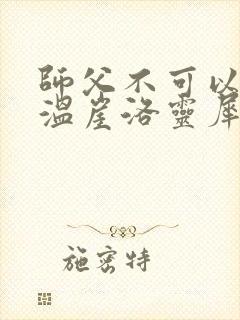 師父不可以
溫崖洛靈犀
施密特